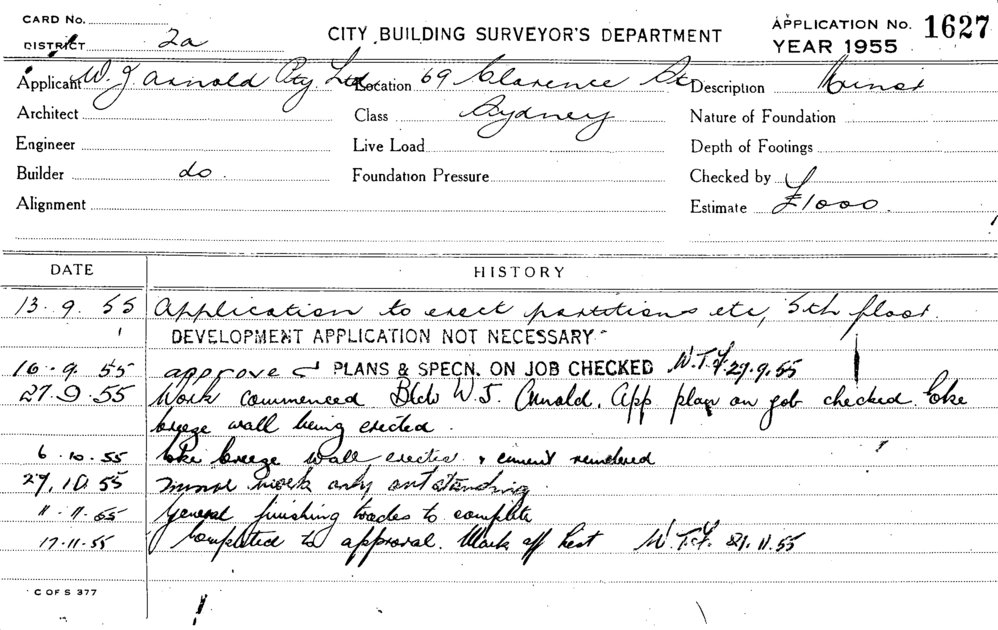 CARD No.
DISTRICT 2a
CITY BUILDING SURVEYOR'S DEPARTMENT
APPLICATION No. 1627
YEAR 1955
Applicant W. J. Arnold Pty. Ltd Location 69 Clarence St Description Minor
Architect Class Sydney Nature of Foundation
Engineer Live Load Depth of Footings
Builder do. Foundation Pressure Checked by
Alignment Estimate £1000.
DATE HISTORY
13. 9. 55 Application to erect partitions etc, 5th floor.
DEVELOPMENT APPLICATION NOT NECESSARY
16. 9. 55 approved PLANS & SPECN. ON JOB CHECKED W.T.F. 27.9.55
27. 9. 55 Work commenced Bldr W. J. Arnold. App. plan on job checked. Coke
breeze wall being erected.
6. 10. 55 Coke breeze wall erected & cement rendered
27. 10. 55 minor work only outstanding.
11. 11. 55 General finishing trades to complete
17. 11. 55 Completed to approval. Mark off W.T.F. 11.55
C OF S 377